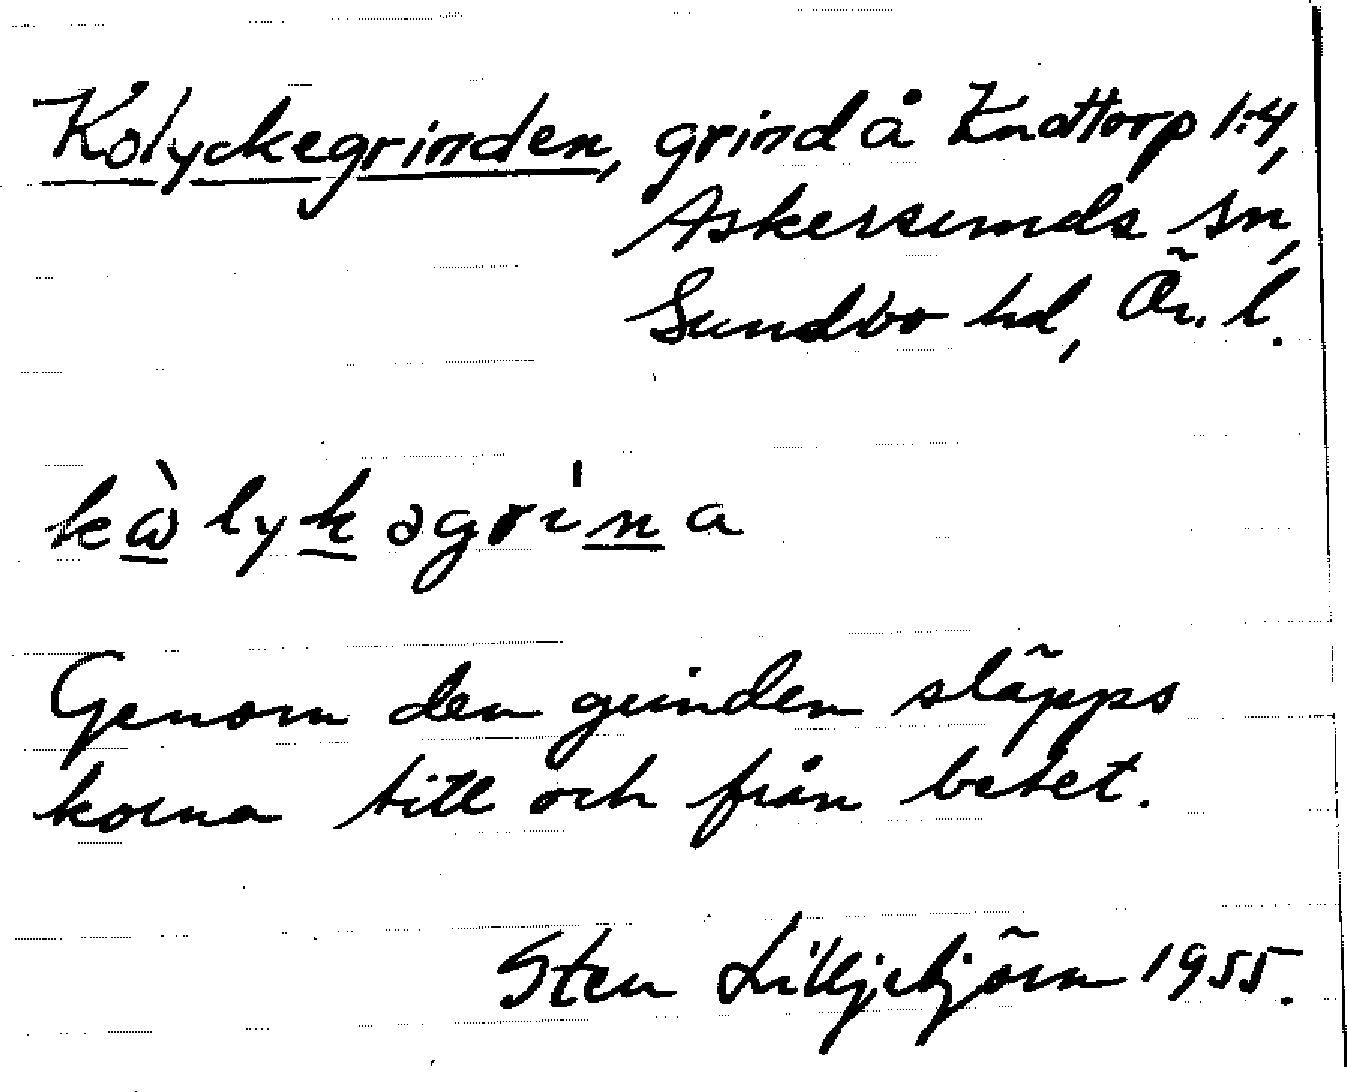 Kolyckegrinden, grind å Knattorp 1:4,
Askersunds sn,
Sundbo hd, Ör. l.
kàlykəgrı'na
Genom den grinden släpps
korna till och från betet.
Sten Lilljebjörn 1955.